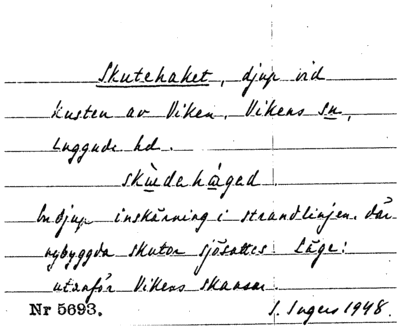 Skutehaket, djup vid
kusten av Viken, Vikens sn,
Luggude hd.
skudehaged
En djup inskärning i strandlinjen. Där
nybyggda skutor sjösattes. Läge:
utanför Vikens skansar.
Nr 5693. S. Ingers 1948.